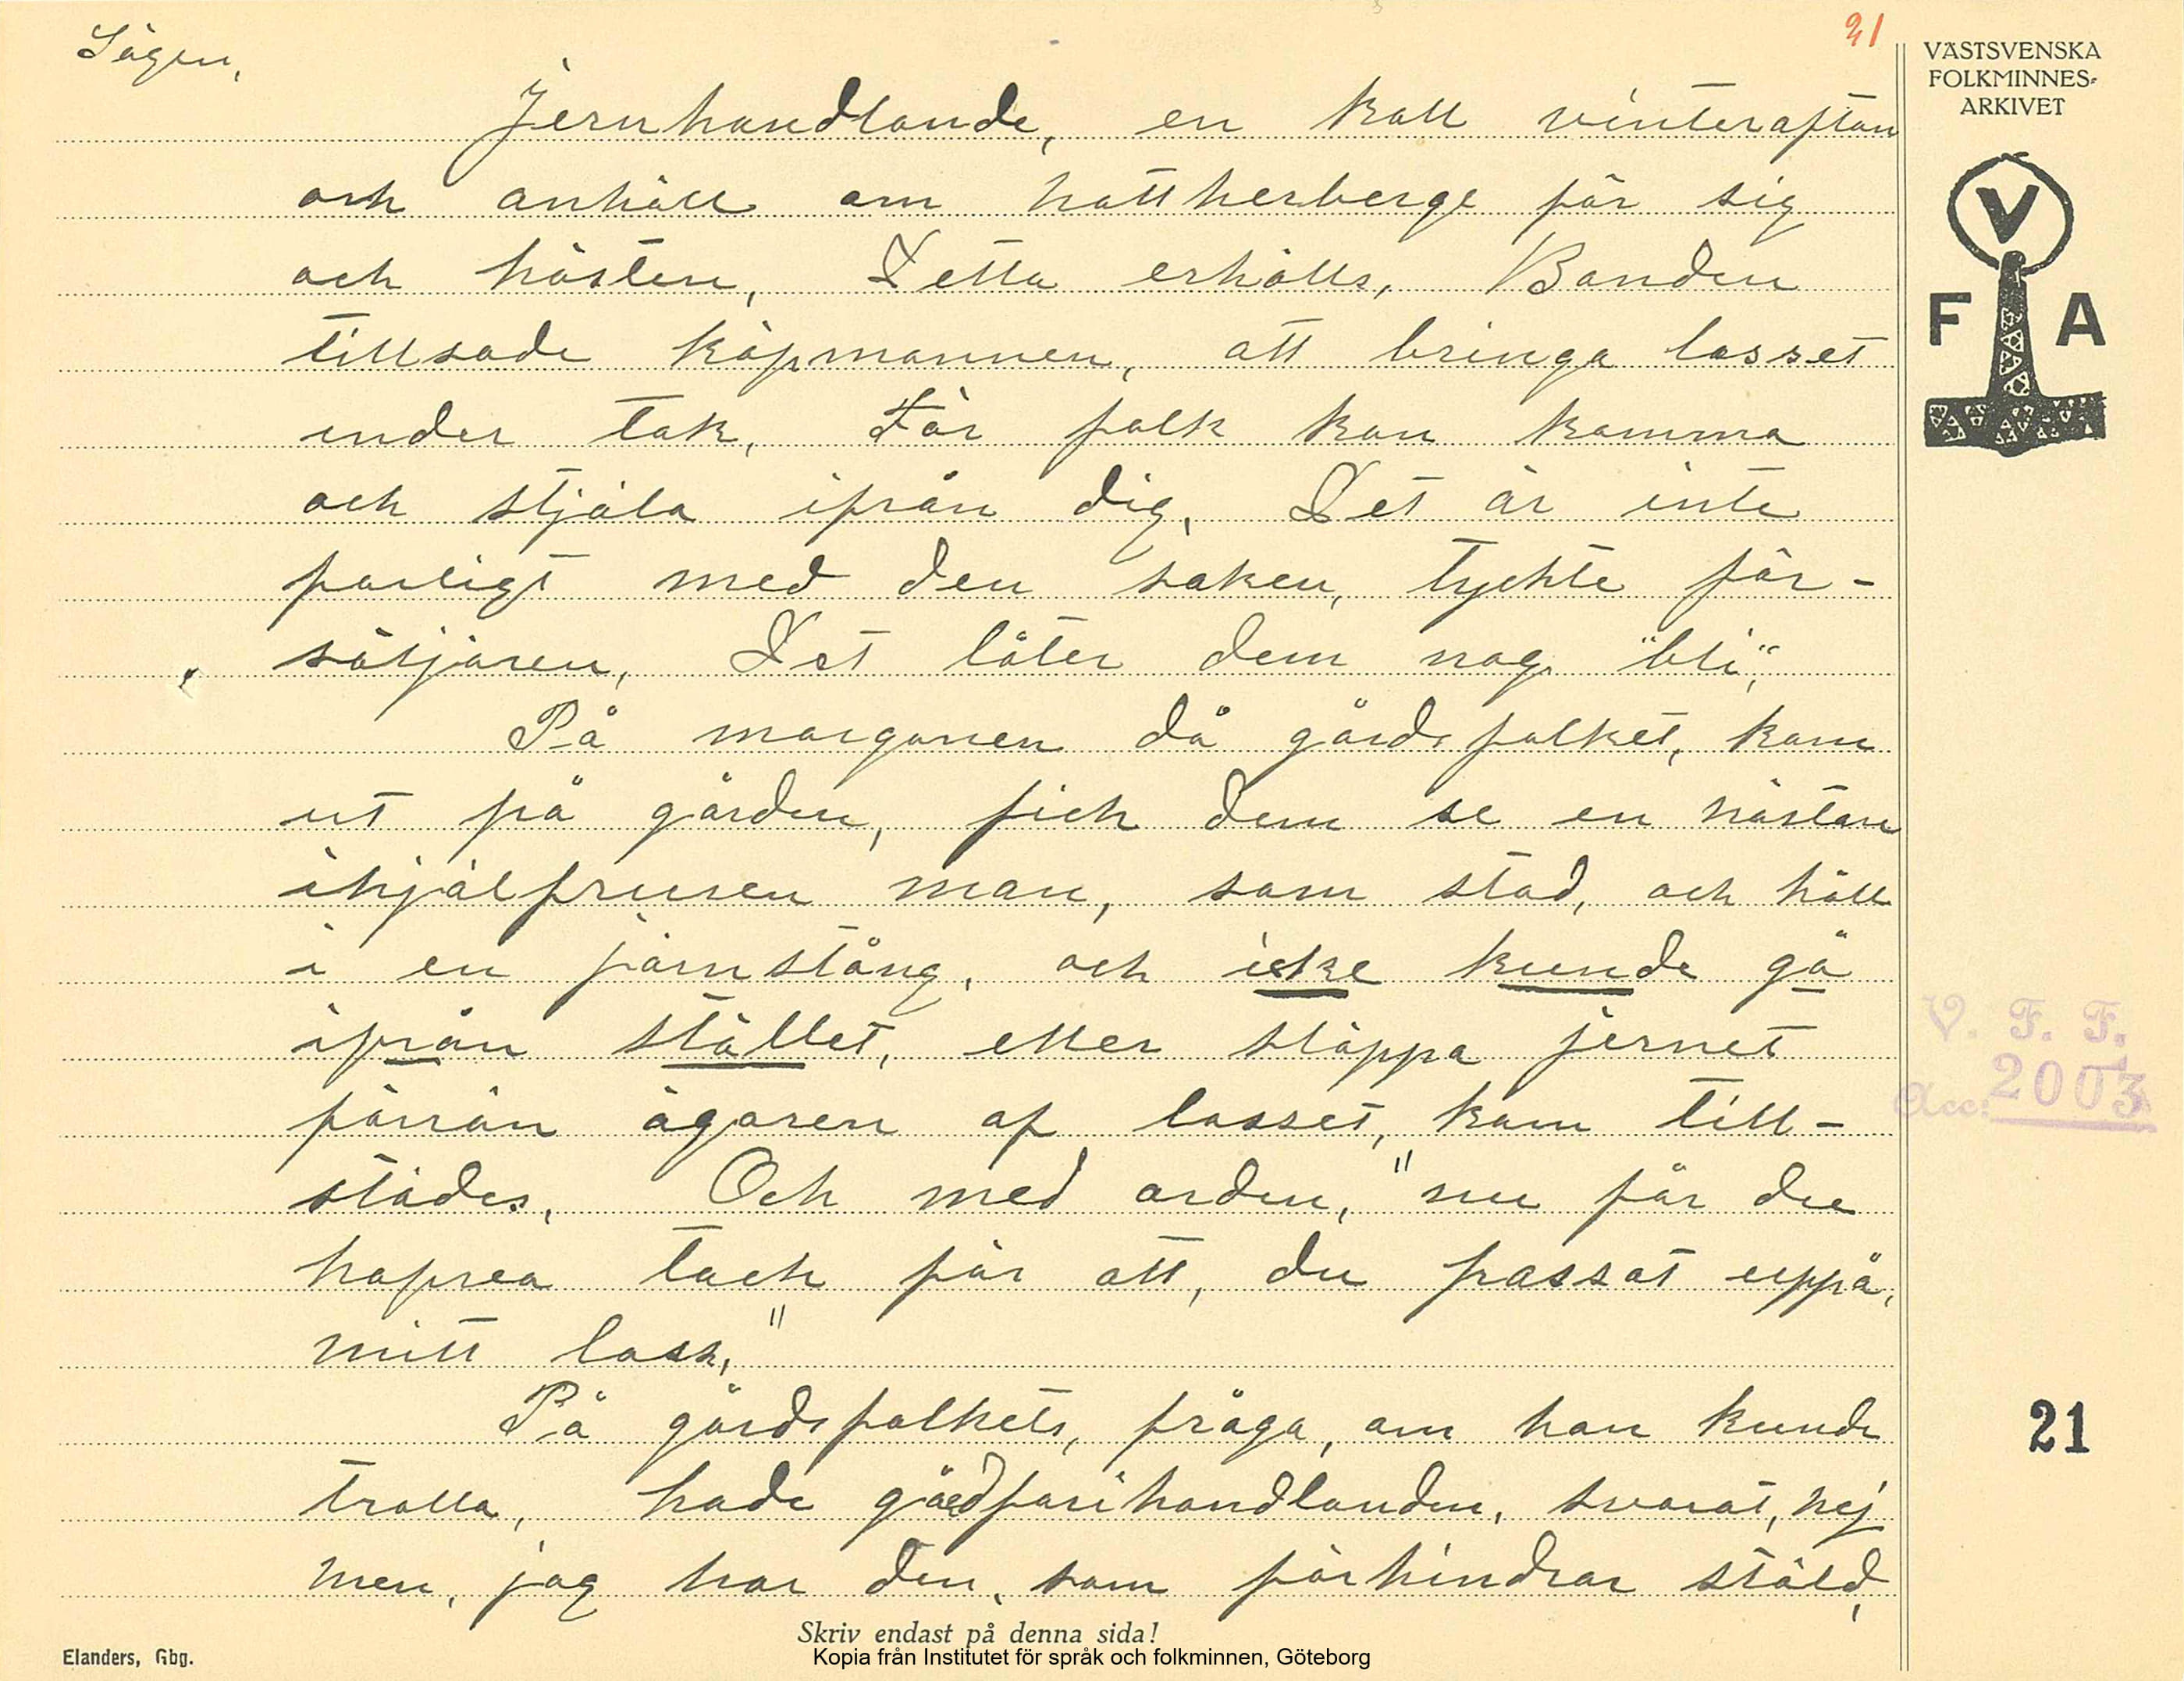 Sägen,
21
Jernhandlande, en kall vinterafton
och anhöll om natt herberge för sig
och hästen, Detta erhölls, Bonden
tillsade köpmannen, att bringa lasset
under tak, För folk kan komma
och stjäla ifrån dig, Det är inte
farligt med den saken, tyckte för-
säljaren, Det låter dem nog "bli",
På morgonen då gårdsfolket, kom
ut på gården, fick dem se en nästan
ihjälfrusen man, som stod, och höll
i en järnstång, och icke kunde gå
ifrån stället, eller släppa jernet
förrän ägaren af lasset, kom till-
städes, Och med orden, "nu får du
hafva tack för att, du passat uppå,
mitt lass,"
På gårdsfolkets, fråga, om han kunde
trolla, hade gårdfarihandlanden, svarat, nej
men, jag har den, som förhindrar stöld,
VÄSTSVENSKA
FOLKMINNES-
ARKIVET
V
F A
V. F. F.
Acc: 2003
21
Skriv endast på denna sida!
Elanders, Gbg.
Kopia från Institutet för språk och folkminnen, Göteborg